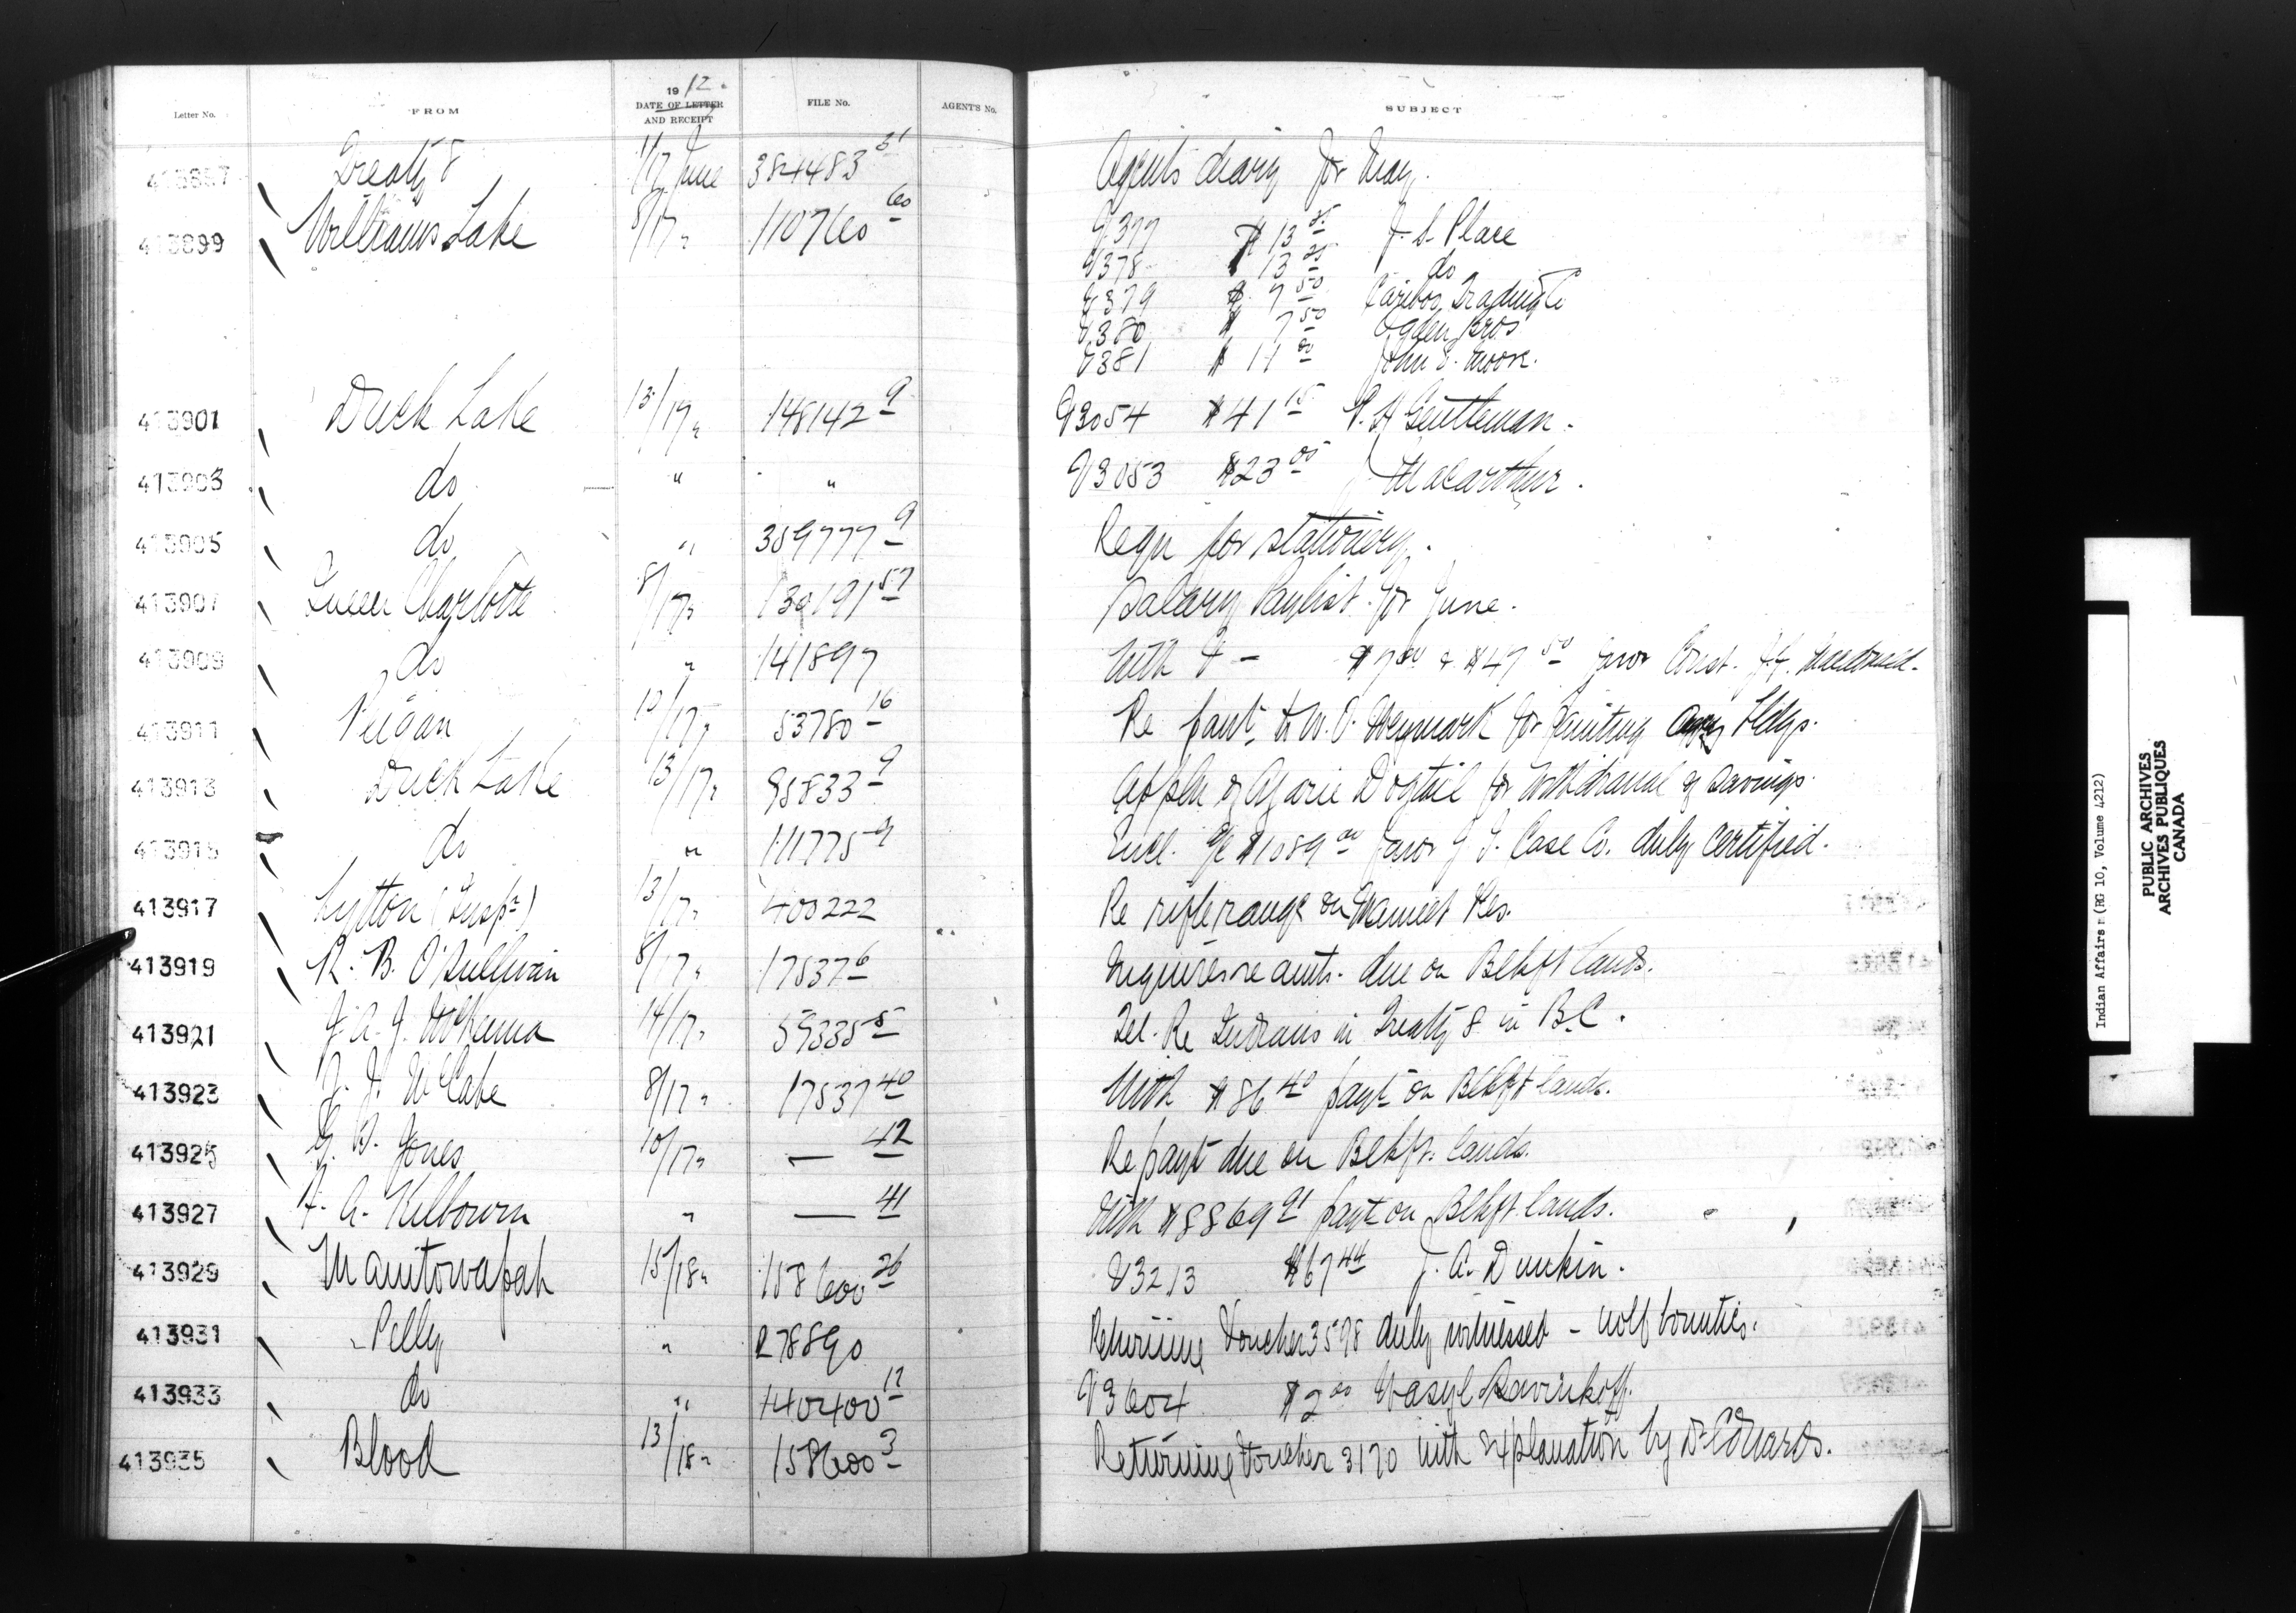 Letter No. FROM 1912. DATE OF LETTER AND RECEIPT FILE No. AGENT'S No. SUBJECT
413897 Treaty 8 1/17 June 384483 31 Agents diary for May.
413899 Williams Lake 8/17 " 110760 60 V377 $13 J. S. Place
V378 $13 25 do
V379 $7 50 Cariboo Trading Co
V380 $7 50 Ogden Bros
V381 $11 00 John E. Moore.
413901 Duck Lake 13/17 " 148142 9 V3054 $41 15 P. H Gentleman.
413903 do " " V3053 $23 00 J Macarthur.
413905 do " 359777 9 Requ for stationery.
413907 Queen Charlotte 8/17 " 130191 57 Salary Paylist for June.
413909 do " 141897 With V - $7 00 & $47 50 favor Const.
413911 Peigan 13/17 " 53780 16 Re payt to W. O. Weymark for painting Agcy bldgs.
413913 Duck Lake 13/17 " 95833 9 Appln of Dogtail for withdrawal of savings.
413915 do " 111775 9 Encl. a/c $1089 00 favor J I. Case Co. duly certified.
413917 Lytton (Insp r) 13/17 " 400222 Re rifle range on Mameet Res.
413919 R. B. O'Sullivan 8/17 " 17537 6 Inquires re amts. due on Blkft lands.
413921 J. A. J. McKenna 14/17 " 59335 5 Tel. Re Indians in Treaty 8 in B.C.
413923 J. McCabe 8/17 " 17537 40 With $86 40 payt on Blkft lands.
413925 G. B. Jones 10/17 " — 42 Re payt due on Blkft. lands.
413927 F. A. Kilbourn " — 41 With $8869 21 payt on Blkft lands.
413929 Manitowapah 15/18 " 158600 26 V3213 $67 44 J. A. Dunkin.
413931 Pelly " 278890 Returning Voucher 3598 duly witnessed - wolf bounties.
413933 do " 140400 12 V3604 $2 00 Wasyl Savinkoff.
413935 Blood 13/18 " 158600 3 Returning Voucher 3170 with explanation by Dr Edwards.
Indian Affairs (RG 10, Volume 4212)
PUBLIC ARCHIVES
ARCHIVES PUBLIQUES
CANADA